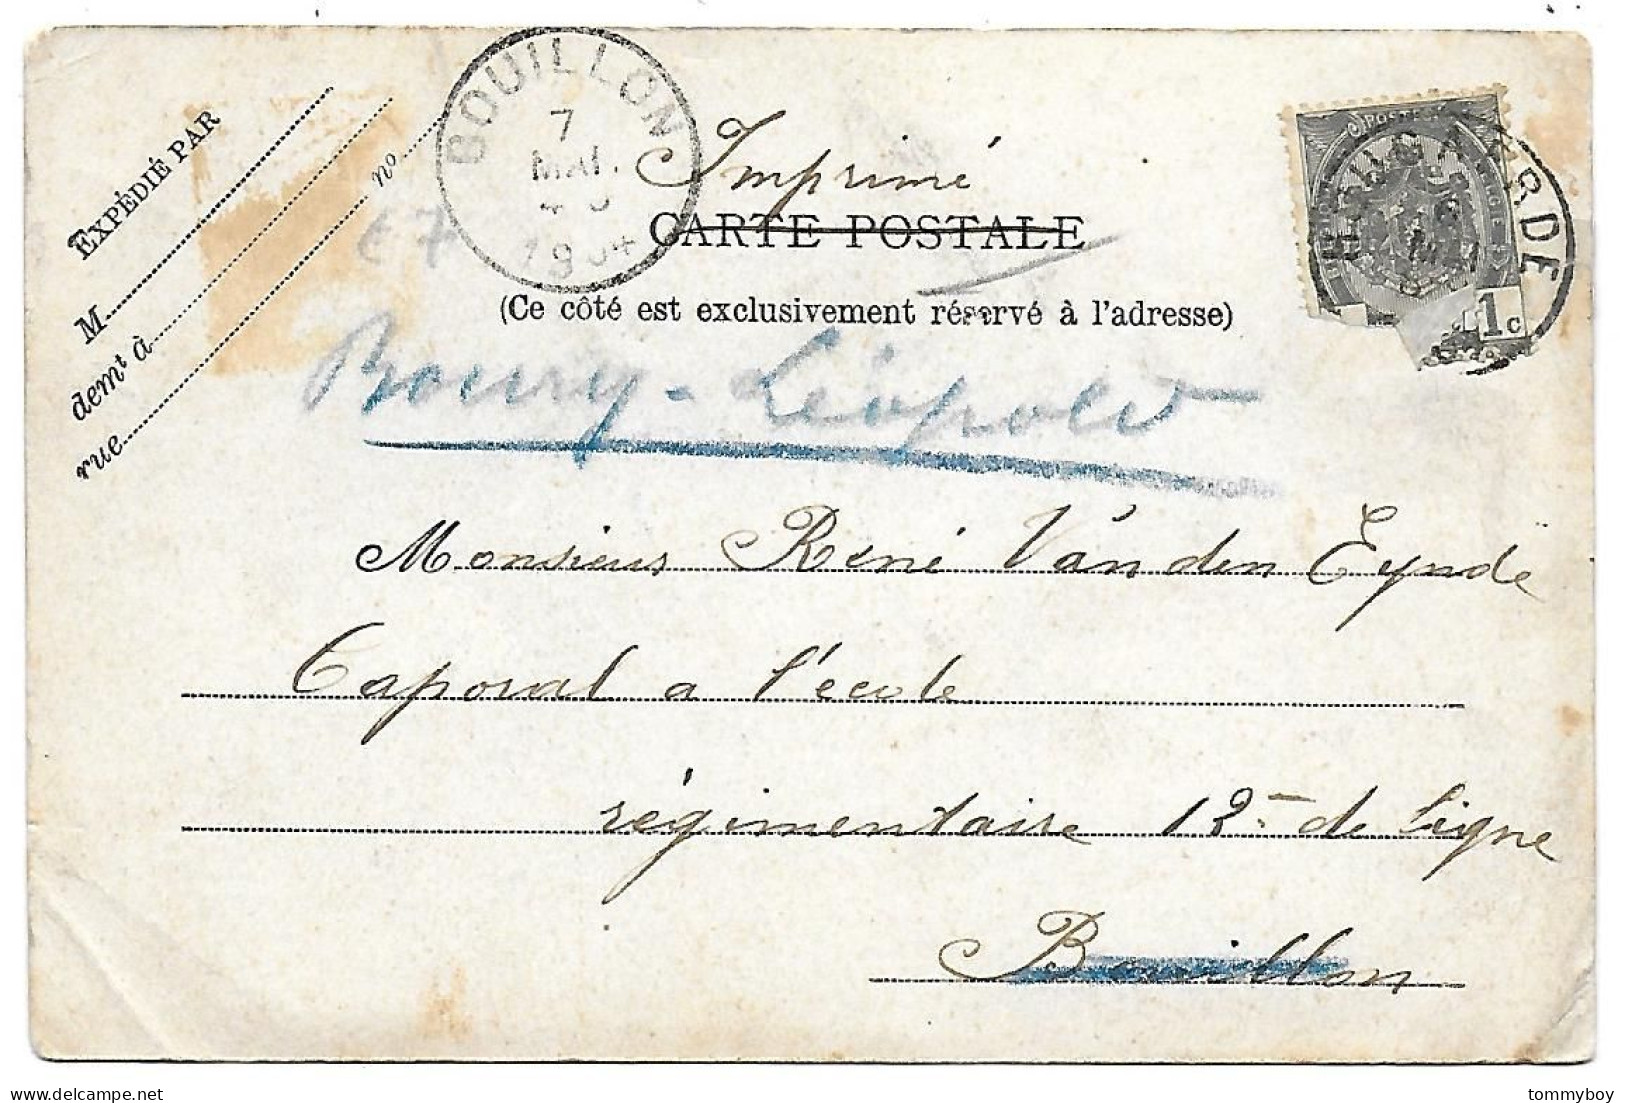 EXPÉDIÉ PAR
M
demt à
rue
no
BOUILLON
7
MAI
1904
E7
Imprimé
CARTE POSTALE
(Ce côté est exclusivement réservé à l'adresse)
POSTES
1c
Bourg-Léopold
Monsieur René Van den Eynde
Caporal a l'école
régimentaire 12me de Ligne
Bouillon
tommyboy